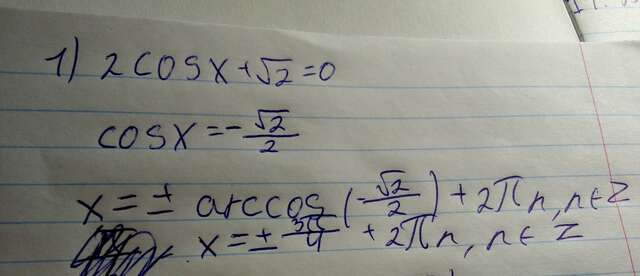 1) 2cosx+√2=0
cosx=-√2/2
x=± arccos(-√2/2)+2πn, n∈Z
x=± 3π/4 +2πn, n∈Z